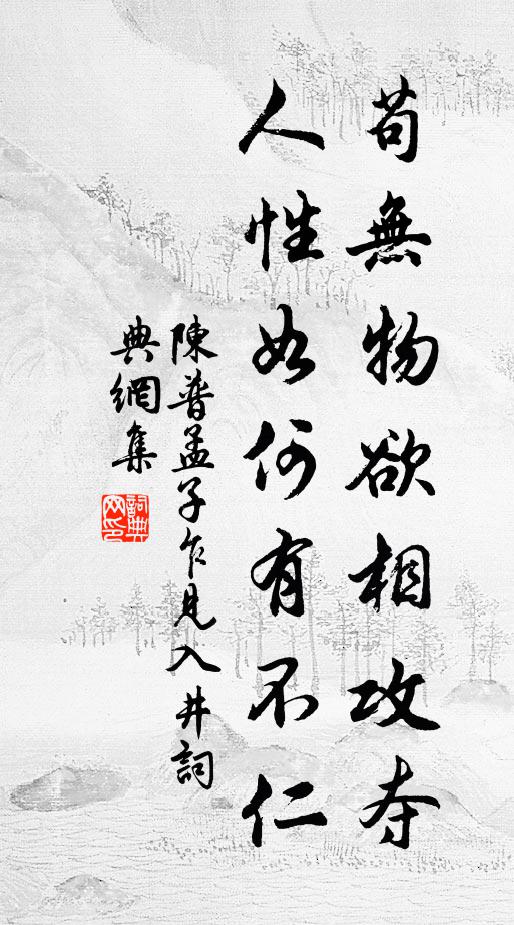 苟無物欲相攻夺
人性如何有不仁
陳普孟子乍見入井詞
典網集
詞典网印